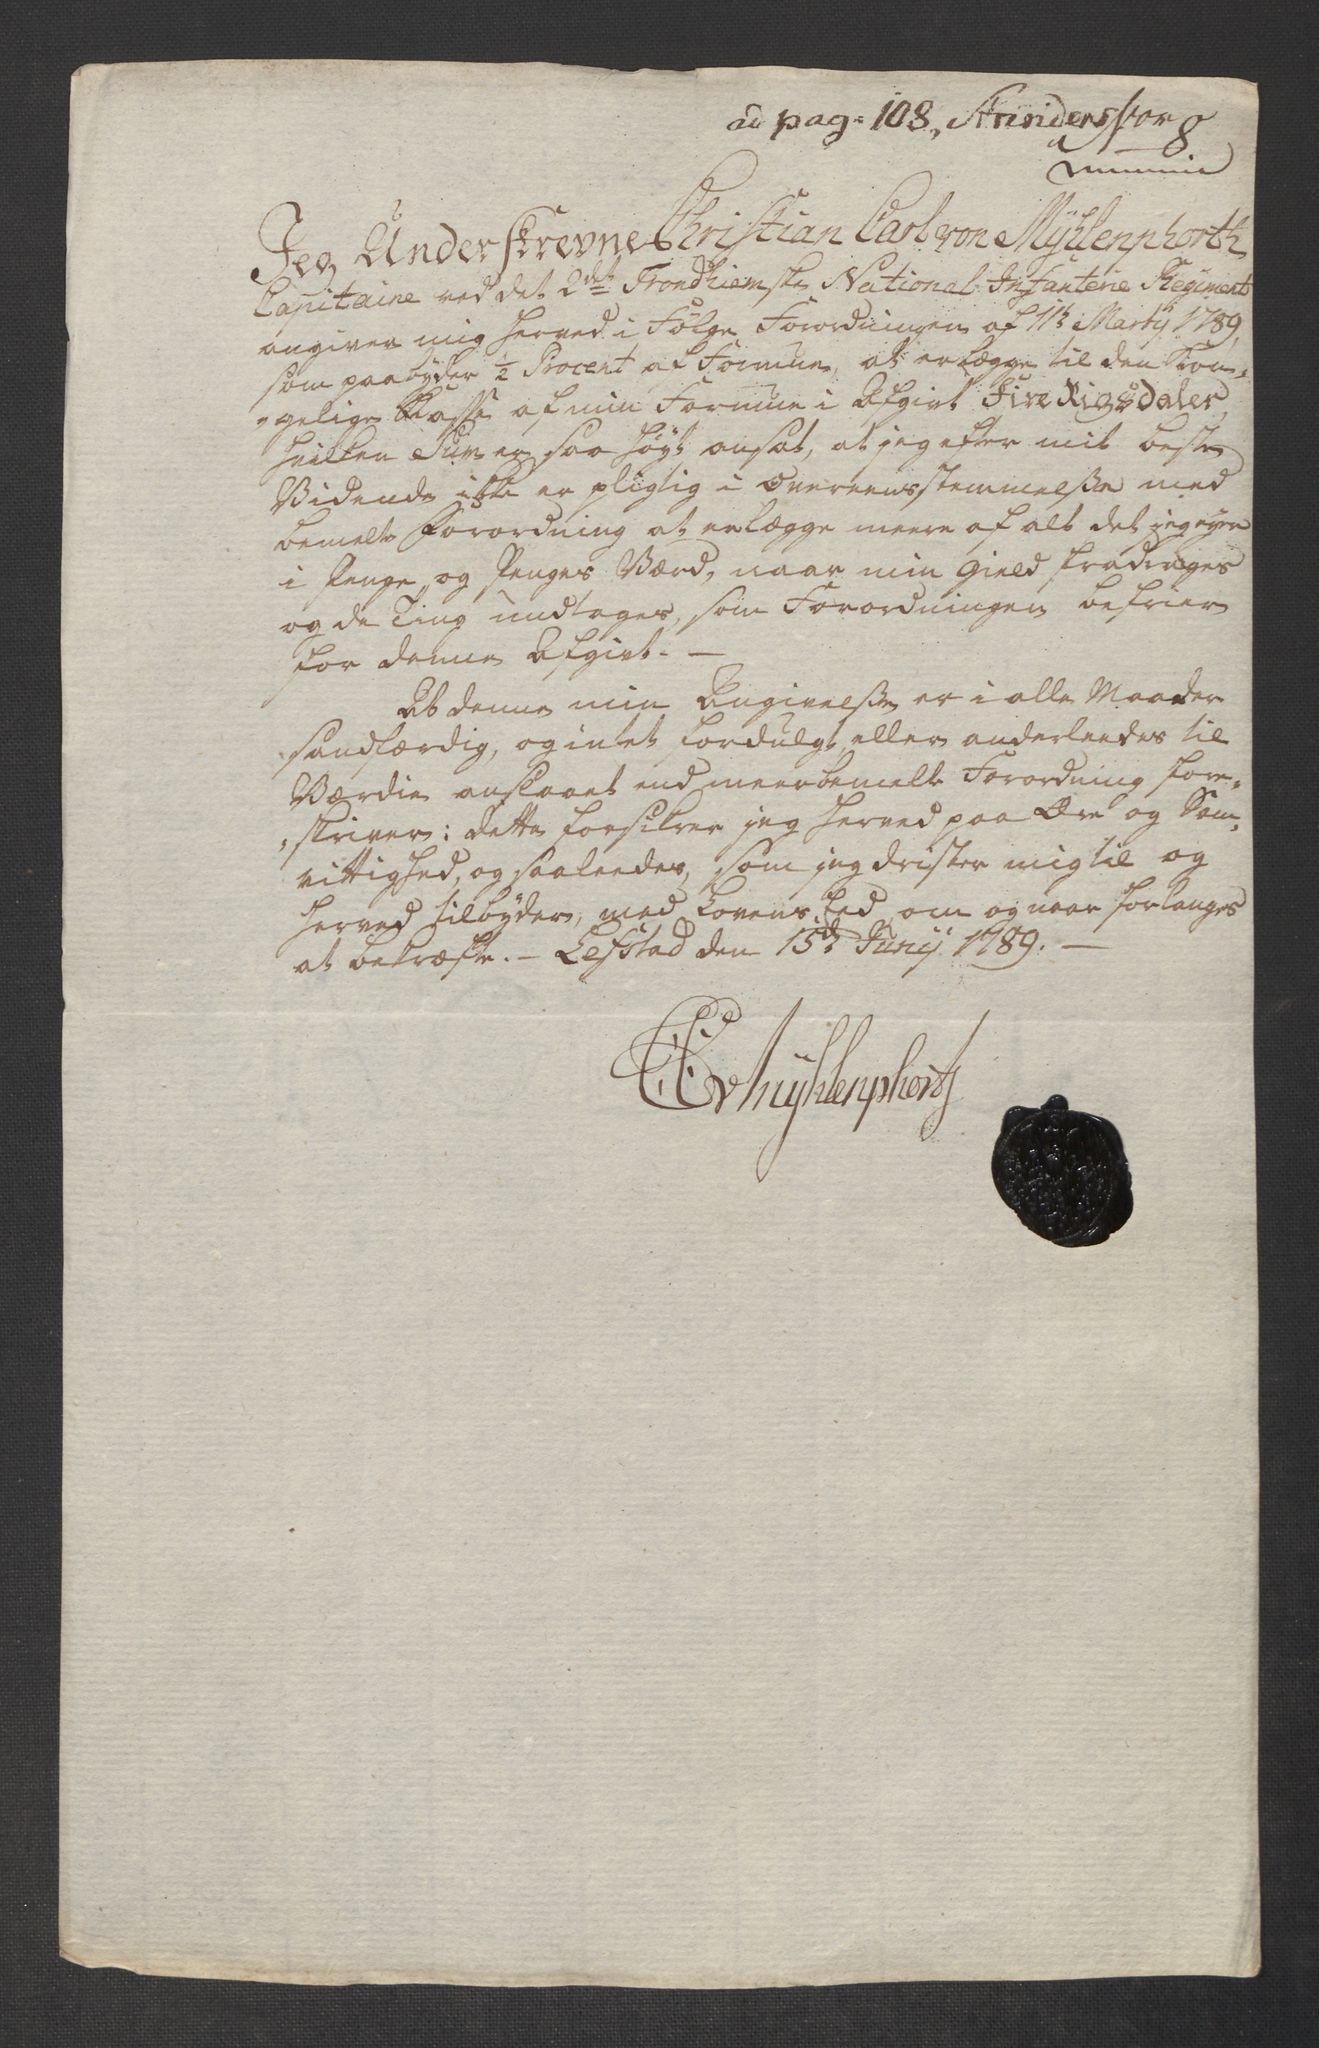 ad pag: 108,
Jeg Underskrevne Christian Carl von Mÿhlenphorth
Capitaine ved det 2det Trondhiemske National Infanterie Regiment
angiver mig herved i Følge Forordningen af 11te Martÿ 1789,
som paabÿder ½ Procent af Formue, at erlægge til den Kon-
-gelige Kasse af min Formue i Afgivt Fire Rigsdaler,
hvilken Sum er saa høÿt ansat, at jeg efter mit beste
Vidende ikke er pligtig i Overeensstemmelse med
bemelte Forordning at erlægge meere af alt det jeg eyer
i Penge og Penges Værd, naar min Gield fradrages
og de Ting undtages, som Forordningen befrier
for denne Afgivt. —
At denne min Angivelse er i alle Maader
sandfærdig, og intet fordulgt eller anderleedes til
Værdie anslaaet end meerbemelte Forordning fore-
-skriver: dette forsikrer jeg herved paa Ære og Sam-
vittighed, og saaleedes, som jeg drister mig til og
herved tilbÿder, med Lovens Eed, om og naar forlanges
at bekræfte. — Lefstad den 15de Junÿ 1789. —
CCvMÿhlenphorth